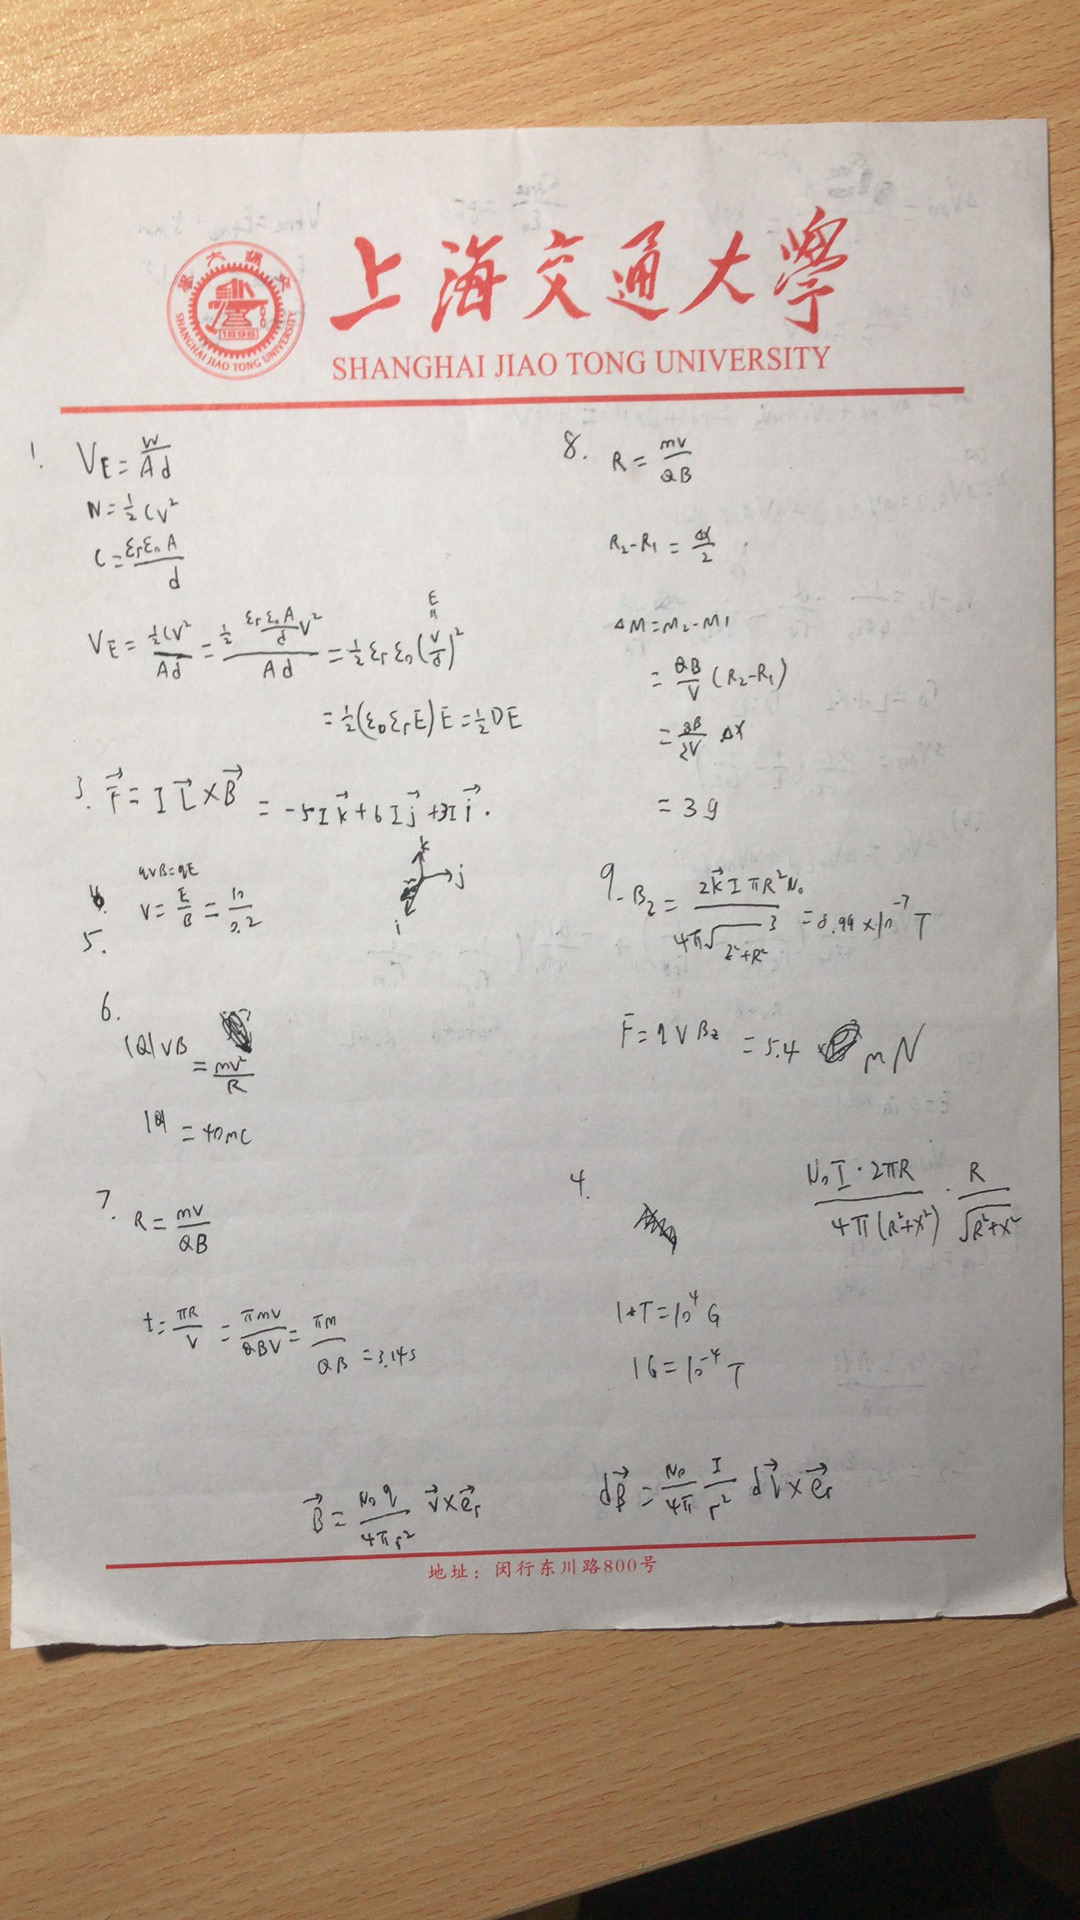 上海交通大學
SHANGHAI JIAO TONG UNIVERSITY
SHANGHAI JIAO TONG UNIVERSITY
1896
1. V_E = W/Ad
W = ½CV²
C = ε_rε_0A/d
V_E = ½CV²/Ad = ½ (ε_rε_0A/d) V²/Ad = ½ε_rε_0(V/d)²
E
=
= ½(ε_0ε_rE)E = ½DE
3. F⃗ = I L⃗ × B⃗ = -5I k⃗ + 6I j⃗ + 3I i⃗.
k
j
i
qvB = qE
v = E/B = 10/0.2
5.
6.
|Q|vB = mv²/R
|Q| = 40mC
7. R = mv/QB
t = πR/v = πmv/QBv = πm/QB = 3.14s
B⃗ = μ_0q/4πr² v⃗ × e⃗_r
8. R = mv/QB
R₂-R₁ = Δx/2
ΔM = M₂-M₁
= QB/V (R₂-R₁)
= QB/2V Δx
= 3g
9. B_z = 2k⃗ I πR²μ_0 / 4π√(z²+R²)³ = 8.99 × 10⁻⁷ T
F = qVB_z = 5.4 mN
4.
μ_0I·2πR / 4π(R²+x²) · R/√(R²+x²)
1*T = 10⁴ G
1G = 10⁻⁴ T
dB⃗ = μ_0/4π I/r² dl⃗ × e⃗_r
地址：闵行东川路800号